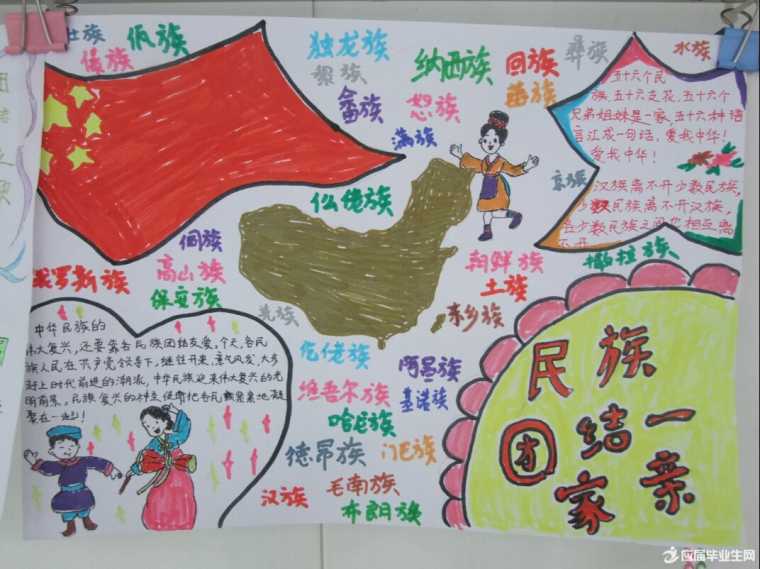 壮族
佤族
傣族
独龙族
黎族
畲族
纳西族
怒族
满族
回族
苗族
彝族
水族
五十六个民
族，五十六支花，五十六个
兄弟姐妹是一家，五十六种语
言汇成一句话，爱我中华！
爱我中华！
汉族离不开少数民族，
少数民族离不开汉族，
各少数民族之间也相互离
不开
京族
撒拉族
仫佬族
侗族
高山族
保安族
俄罗斯族
羌族
朝鲜族
土族
东乡族
仡佬族
维吾尔族
哈尼族
阿昌族
基诺族
德昂族
门巴族
汉族
毛南族
布朗族
中华民族的
伟大复兴，还要靠各民族团结友爱，今天，各民
族人民在共产党领导下，继往开来，意气风发，大步
赶上时代前进的潮流，中华民族迎来伟大复兴的光
明前景。民族复兴的
把各民族紧紧地凝
聚在一起！
民族
团结一
家亲
应届毕业生网